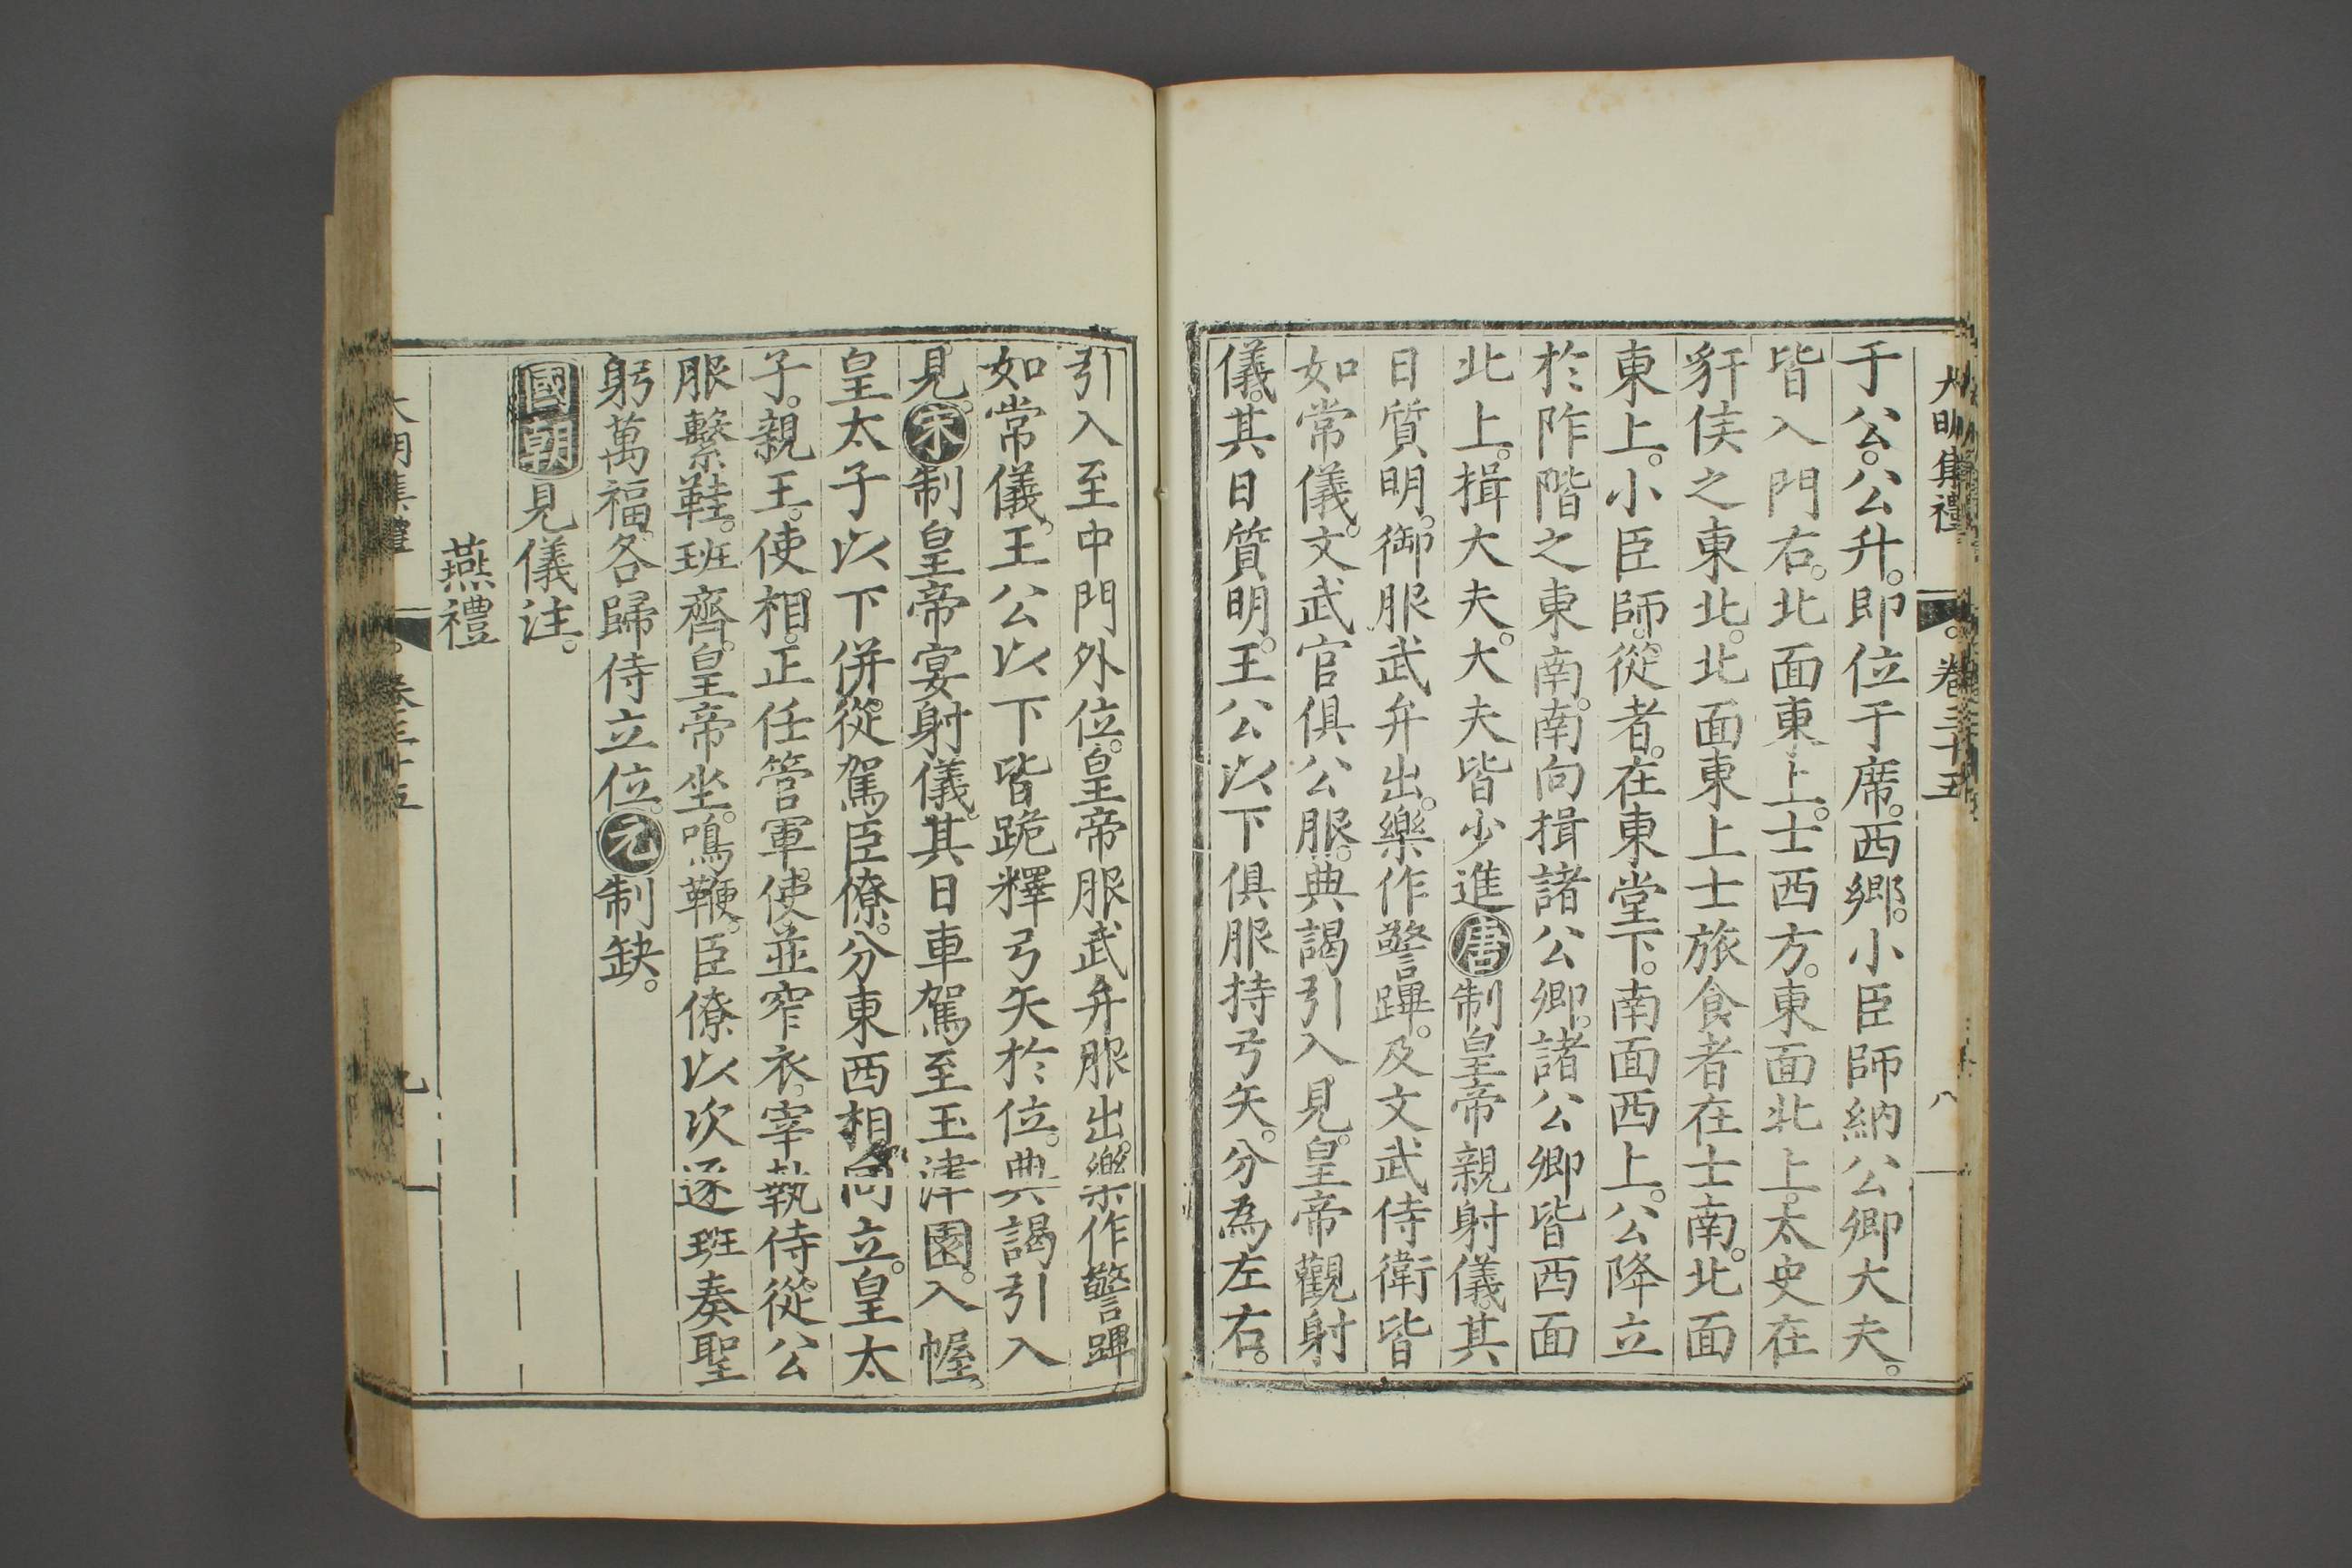 大明集禮 卷三十五 八
于公。公升。即位于席。西鄉。小臣師納公卿大夫。
皆入門右。北面東上。士西方。東面北上。太史在
豻侯之東北。北面東上士旅食者在士南。北面
東上。小臣師。從者。在東堂下。南面西上。公降立
於阼階之東南。南向揖諸公卿。諸公卿皆西面
北上。揖大夫。大夫皆少進唐制皇帝親射儀。其
日質明。御服武弁出。樂作警蹕。及文武侍衛皆
如常儀。文武官俱公服。典謁引入見。皇帝觀射
儀。其日質明。王公以下俱服持弓矢。分為左右。
引入至中門外位。皇帝服武弁服出。樂作警蹕
如常儀。王公以下皆跪釋弓矢於位。典謁引入
見。宋制皇帝宴射儀。其日車駕至玉津園。入幄。
皇太子以下併從駕臣僚。分東西相向立。皇太
子。親王。使相。正任管軍。使。並窄衣。宰執侍從公
服繫鞋。班齊。皇帝坐。鳴鞭。臣僚以次逐班奏聖
躬萬福。各歸侍立位。元制缺。
國朝見儀注。
燕禮
大明集禮 卷三十五 九